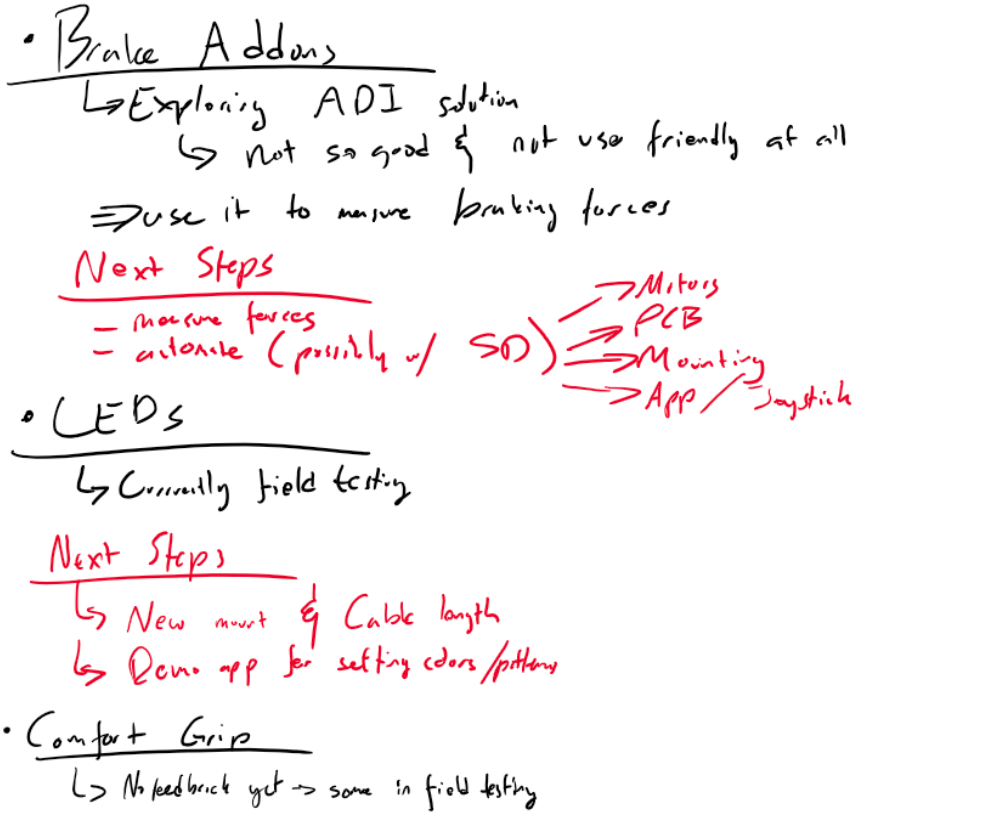 • Brake Addons
↳ Exploring ADI solution
↳ not so good & not use friendly at all
⇒ use it to measure braking forces
Next Steps
– measure forces
– automate (possibly w/ SD)
→ Motors
→ PCB
→ Mounting
→ App / Joystick
• LEDs
↳ Currently field testing
Next Steps
↳ New mount & Cable length
↳ Demo app for setting colors/patterns
• Comfort Grip
↳ No feedback yet → some in field testing